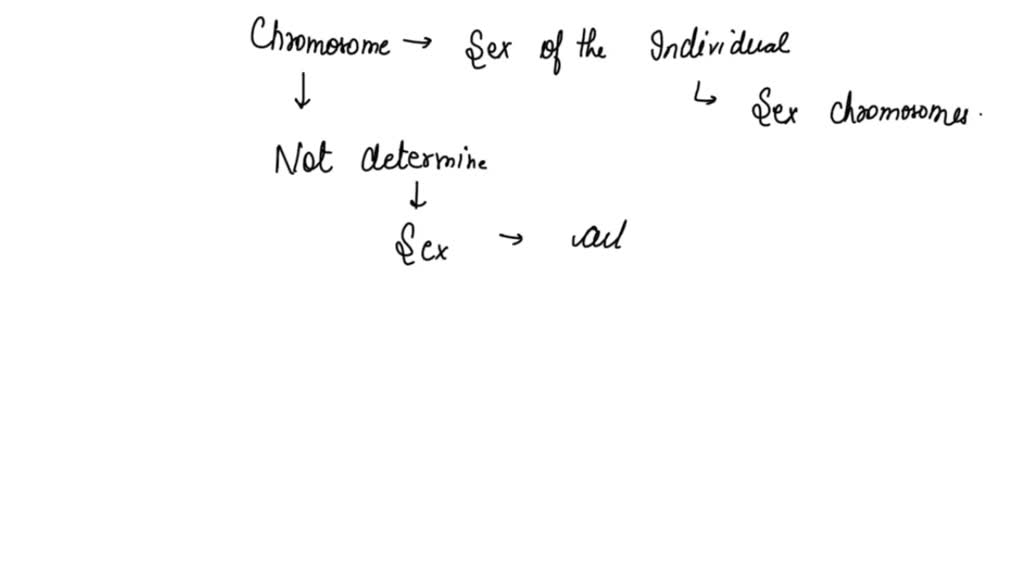 Chromosome → Sex of the Individual
↓ ↳ Sex chromosomes.
Not determine
↓
Sex →